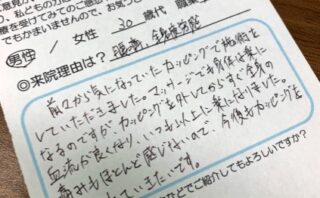 療を受けてみてのご意
でもかまいませんので、お気
男性 / 女性 30歳代 職業
腰痛、
◎来院理由は?
前々から気になっていたカッピングで施術を
していただきました。マッサージでも身体は楽に
なるのですが、カッピングを外してからすぐ、全身の
血流が良くなり、いつも以上に楽になりました。
痛みもほとんど感じないので、今後もカッピングを
していきたいです。
などでご紹介してもよろしいですか?